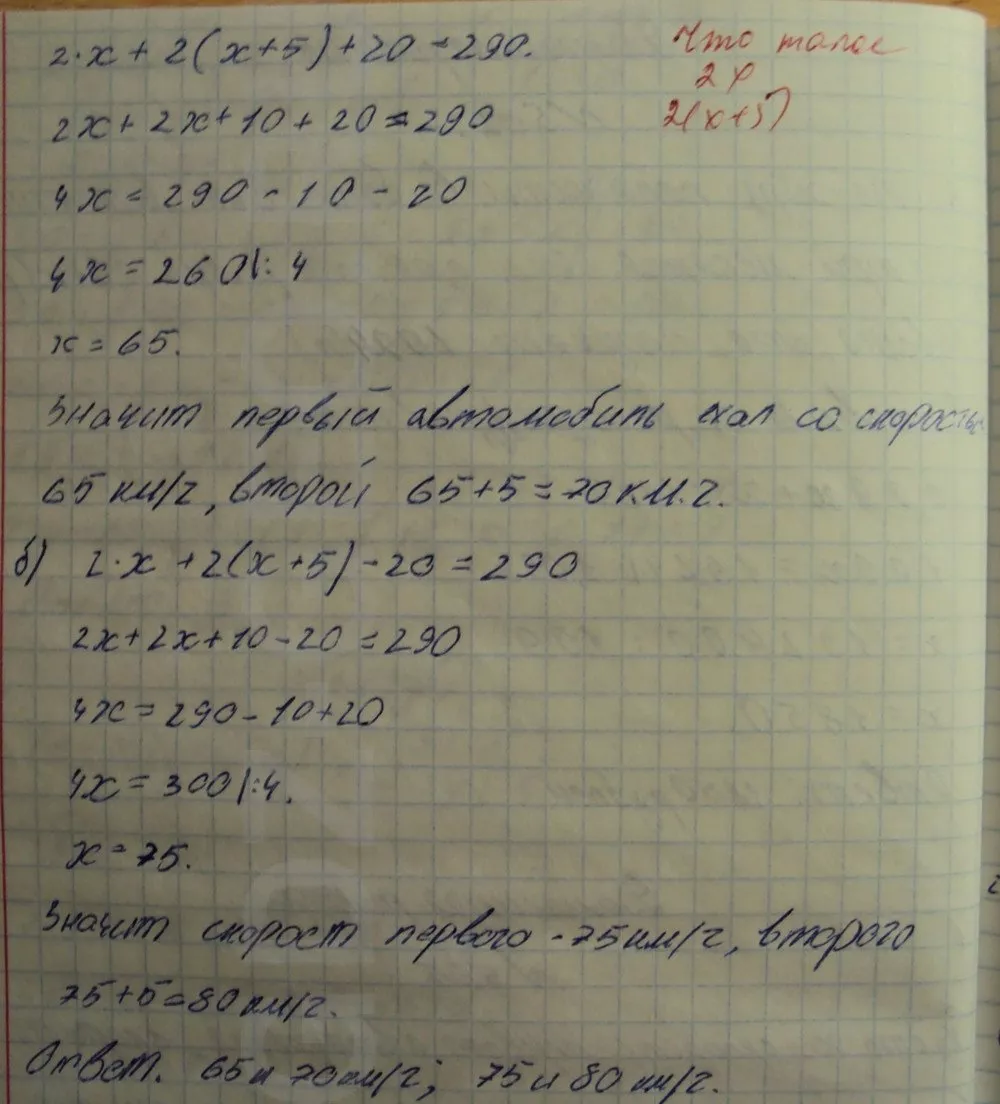 2·x + 2(x+5)+20 = 290.
Что такое
2x
2(x+5)
2x+2x+10+20=290
4x = 290 - 10 - 20
4x = 260|:4
x = 65.
Значит первый автомобиль ехал со скоростью
65 км/ч, второй 65+5=70 к.м.ч.
б) 2·x +2(x+5)-20 = 290
2x+2x+10-20 = 290
4x = 290-10+20
4x = 300|:4.
x = 75.
Значит скорост первого - 75 км/ч, второго
75+5=80 км/ч.
Ответ. 65 и 70 км/ч; 75 и 80 км/ч.